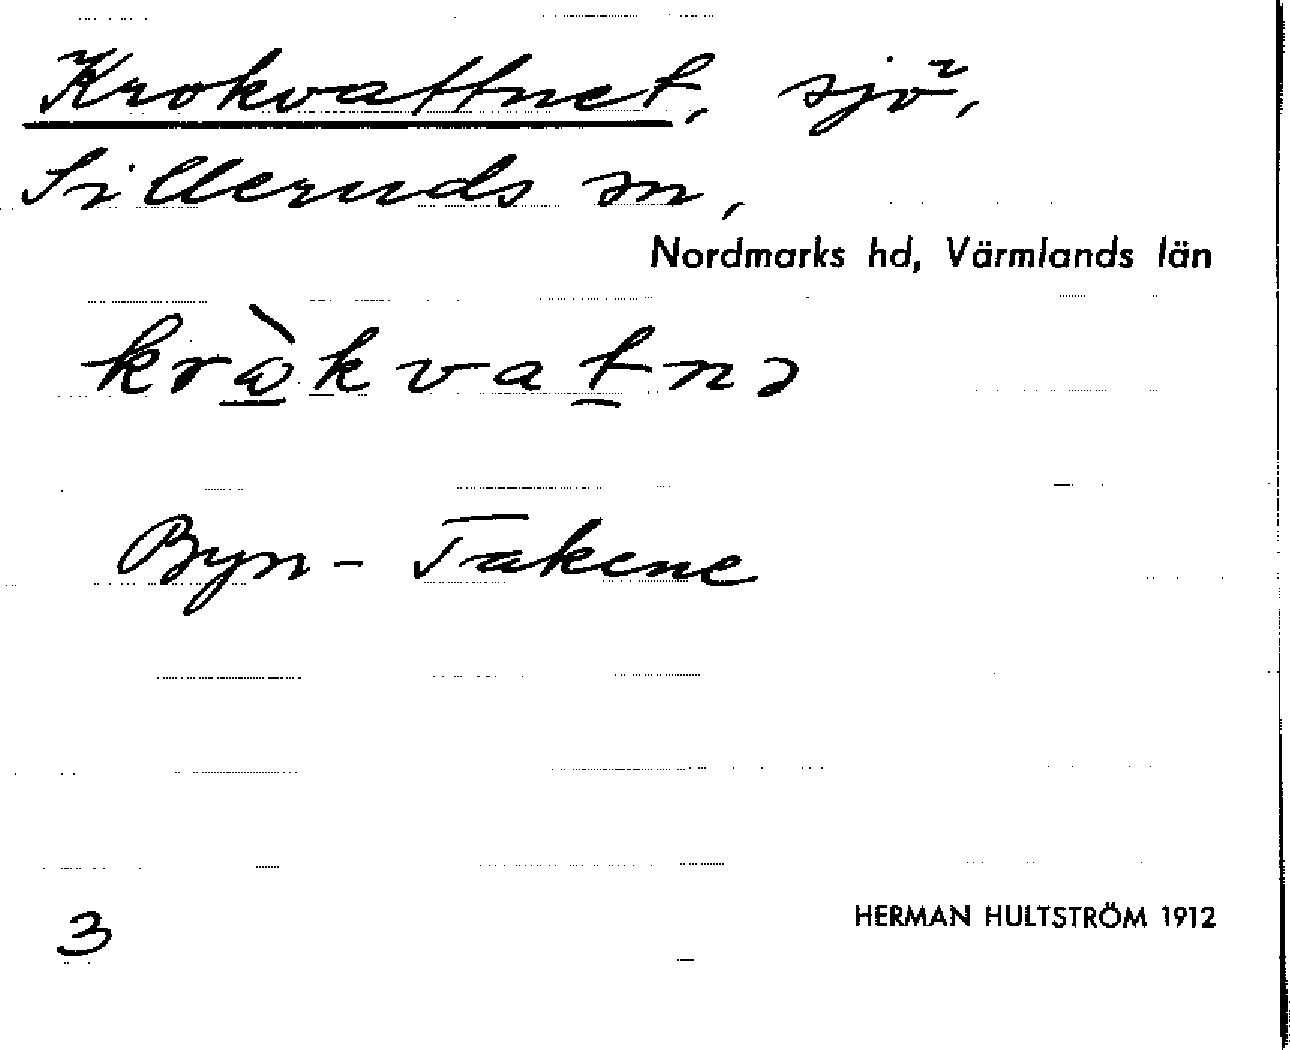 Krokvattnet, sjö,
Silleruds sn,
Nordmarks hd, Värmlands län
kròkvatnə
Byn-Takene
3
HERMAN HULTSTRÖM 1912